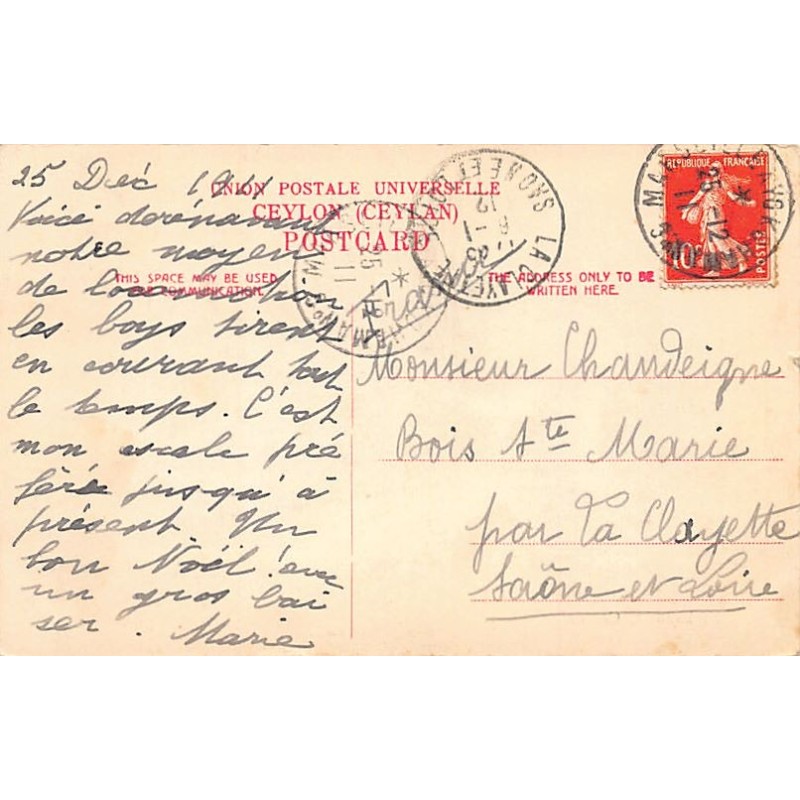 25 Déc 1911
UNION POSTALE UNIVERSELLE
CEYLON (CEYLAN)
POSTCARD
THIS SPACE MAY BE USED
FOR COMMUNICATION.
THE ADDRESS ONLY TO BE
WRITTEN HERE.
Voici dorénavant
notre moyen
de locomotion
les boys tirent
en courant tout
le temps. C'est
mon escale pré
férée jusqu'à
présent. Un
bon Noël! avec
un gros bai
ser. Marie
Monsieur Chandeigne
Bois Ste Marie
par La Clayette
Saône et Loire
REPUBLIQUE FRANÇAISE
10c
POSTES
25 -12
11
LA CLAYETTE
SAONE ET LOIRE
25
11